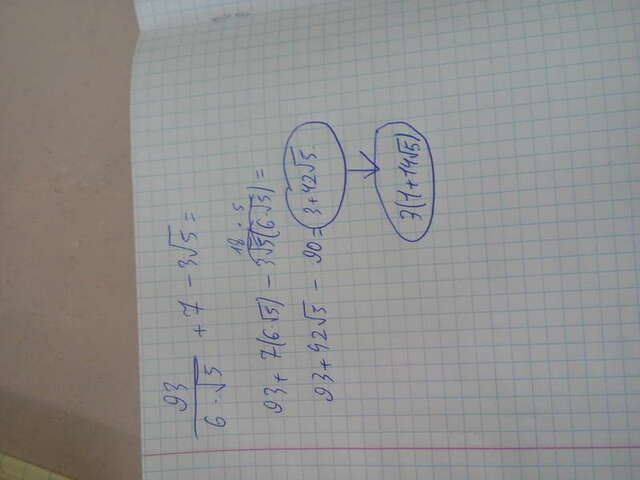 93/(6·√5) + 7 - 3√5 =
18 · 5
93 + 7(6·√5) - 3√5(6·√5) =
93 + 42√5 - 90 = 3+42√5
3(1+14√5)